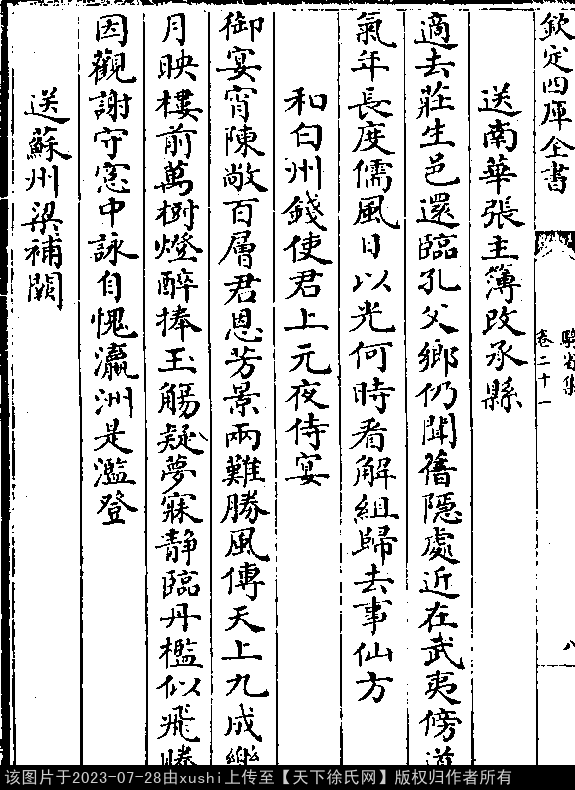 欽定四庫全書
騎省集
卷二十一
八
送南華張主簿改承縣
適去莊生邑還臨孔父鄉仍聞舊隠處近在武夷傍道
氣年長度儒風日以光何時看解組歸去事仙方
和白州錢使君上元夜侍宴
御宴宵陳敞百層君恩芳景兩難勝風傳天上九成樂
月映樓前萬樹燈醉捧玉觴疑夢寐静臨丹檻似飛騰
因觀謝守窓中詠自愧瀛洲是濫登
送蘇州梁補闕
该图片于2023-07-28由xushi上传至【天下徐氏网】版权归作者所有